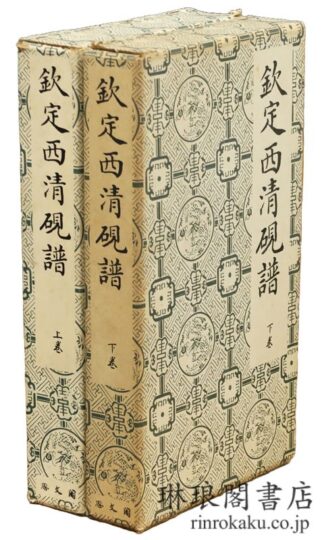 欽定西清硯譜
上卷
欽定西清硯譜
下卷
欽定西清硯譜
下卷
啓文閣
琳琅閣書店
rinrokaku.co.jp